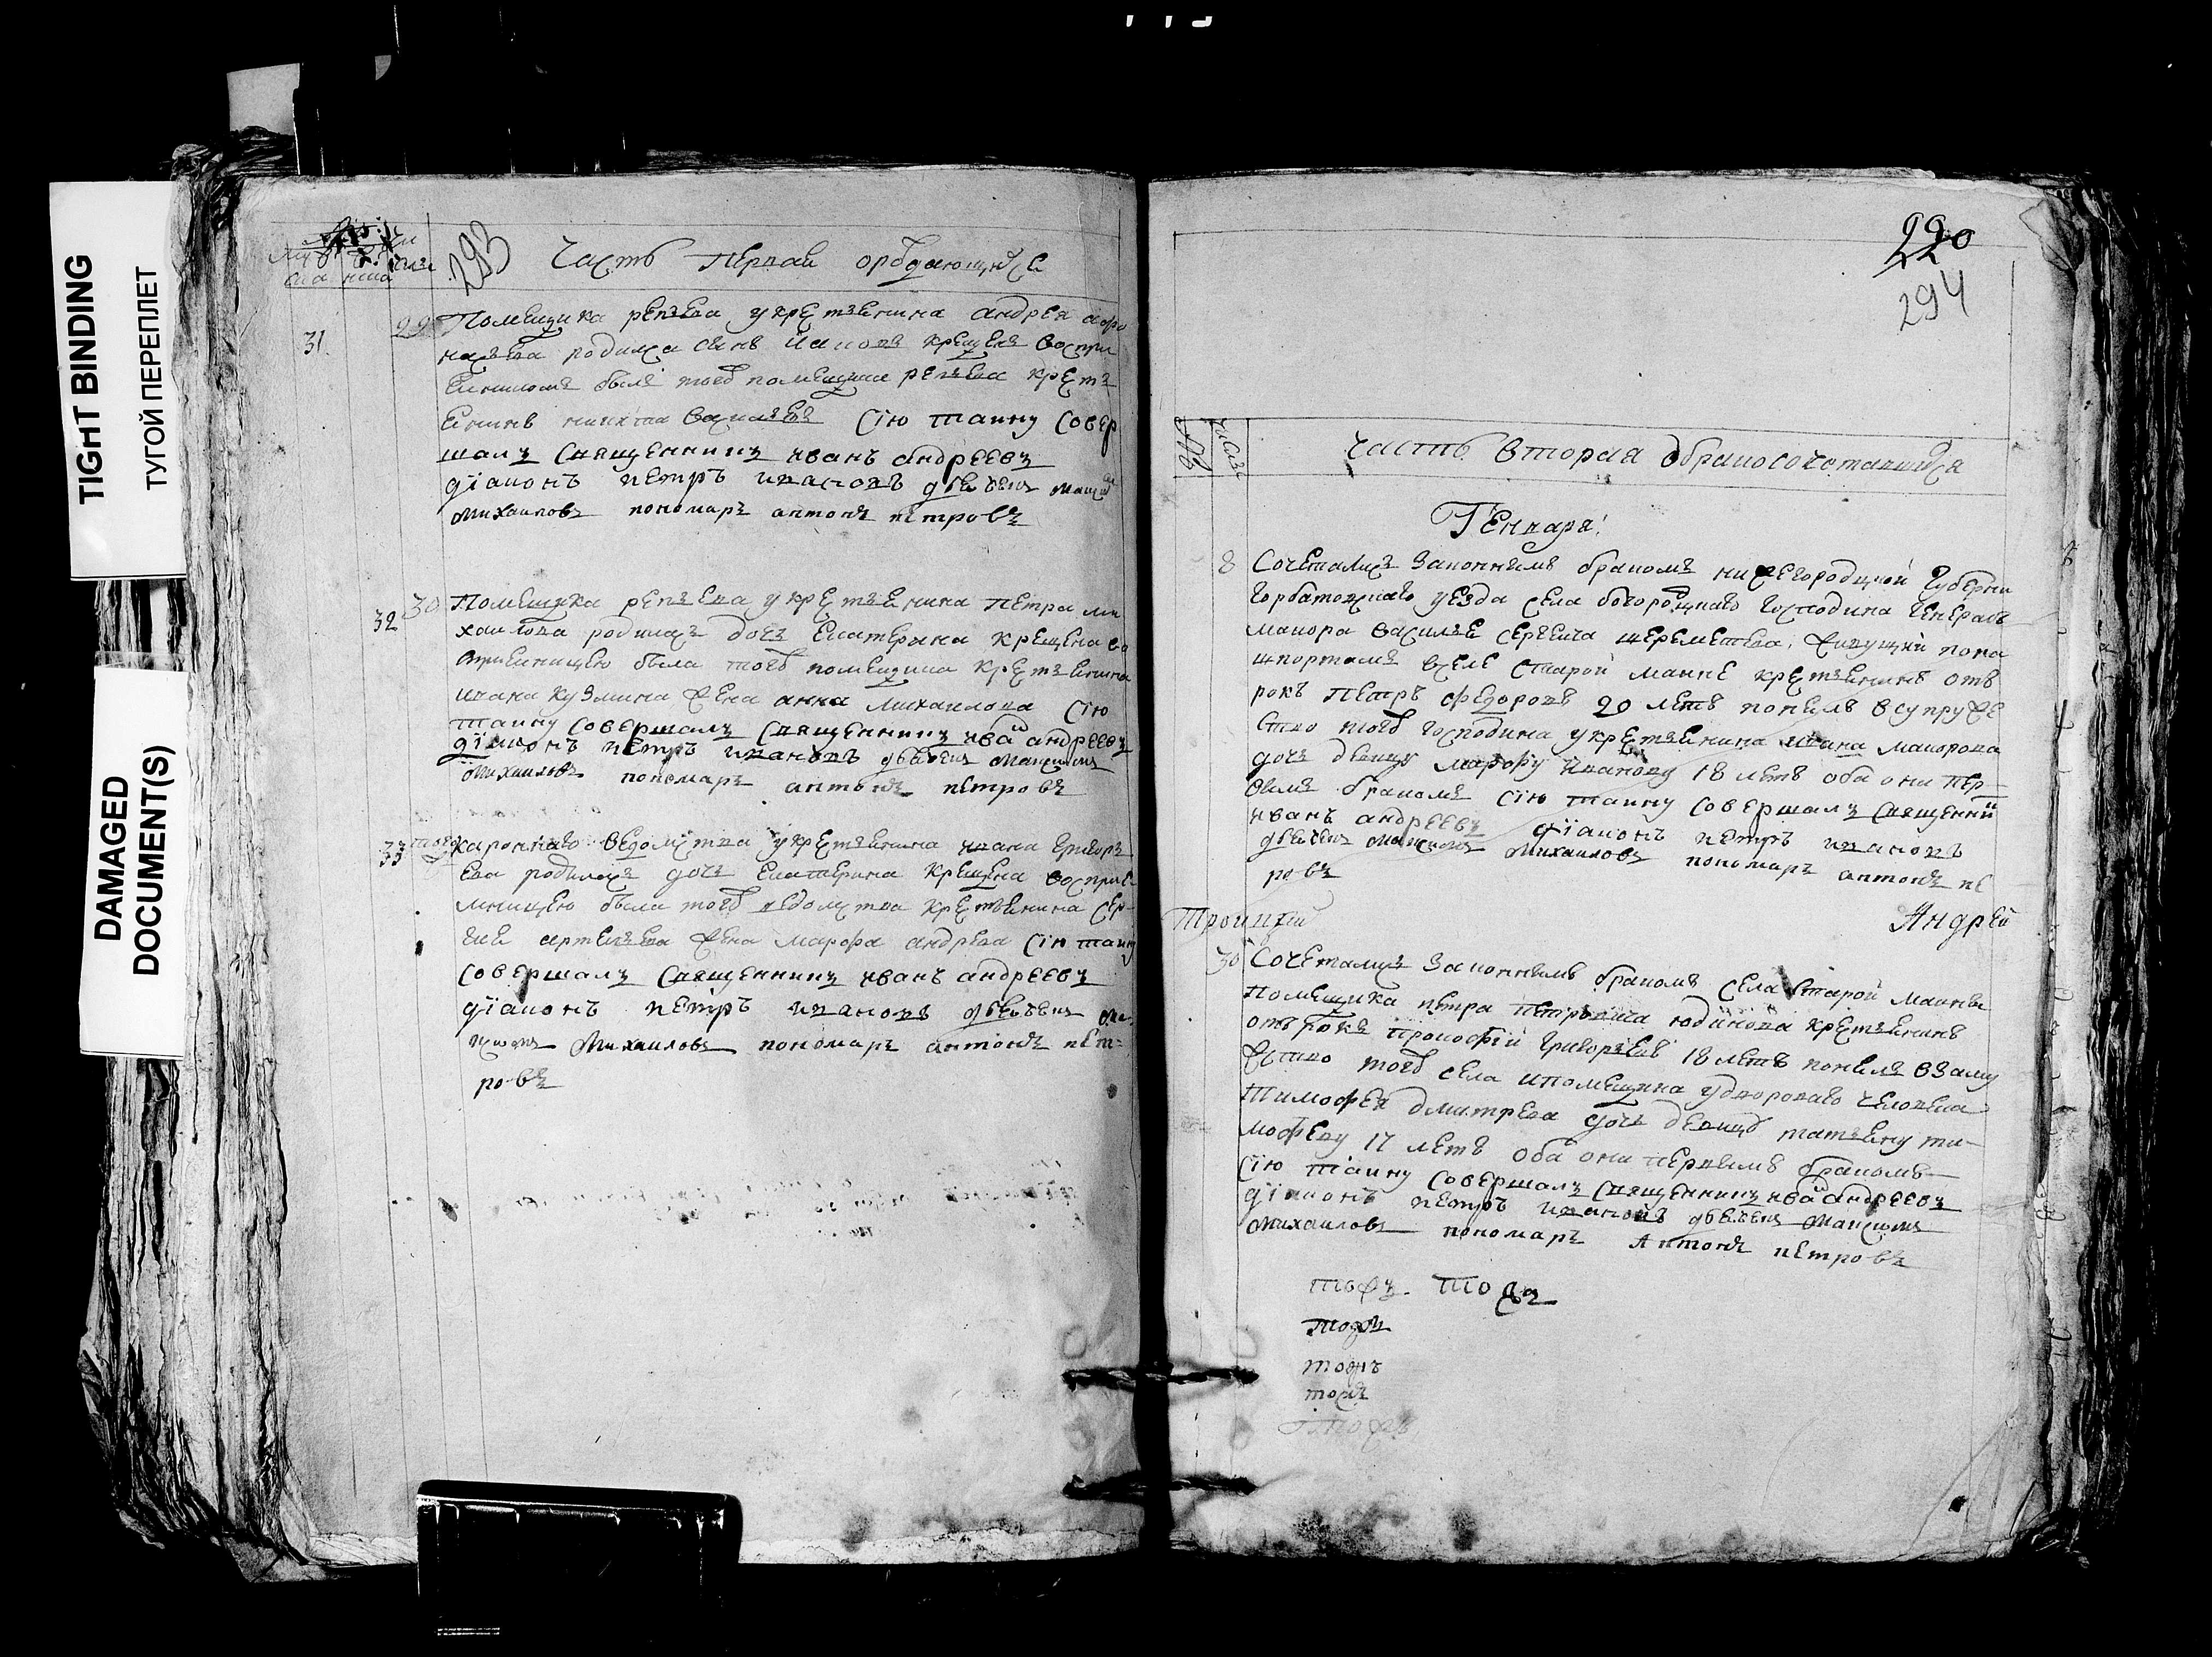 TIGHT BINDING
ТУГОЙ ПЕРЕПЛЕТ
DAMAGED
DOCUMENT(S)
293
Часть первая орождающихся
31
29
Помещика репьева укрестьенина андрея афо
насьева родился сынъ иаковъ крещенъ воспри
емникомъ былъ тогож помещика репьева крестъ
енинъ никита васильевъ сию таинну совер
шалъ священникъ иванъ андреевъ
диаконъ петръ ивановъ дьячекъ максим
михаиловъ пономарь антонъ петровъ
32
30
Помещика репьева укрестьенина петра ми
хаилова родилась дочь екатерина крещена во
сприемницею была тогож помещика крестьенина
ивана кузмина жена анна михаилова сию
таинну совершалъ священникъ иван андреевъ
диаконъ петръ ивановъ дьячекъ максимъ
михаиловъ пономарь антонъ петровъ
33
тогож
каронного ведомства укрестьенина ивана григорь
ева родилась дочь екатерина крещена восприе
мницею была тогож ведомства крестьенина сер
гея артемьева жена марфа андрева сию таинну
совершалъ священникъ иванъ андреевъ
диаконъ петръ ивановъ дьячекъ ма
ксимъ михаиловъ пономарь антонъ пет=
ровъ
220
294
часть вторая обракосочетавшихся
Генваря
8
Сочетались законнымъ бракомъ нижегородцкой губерни
горбатовскаго уезда села богородцкаго господина генералъ
маиора василья сергеича шереметева живущий попа
шпортомъ вселе старой маине крестьенинъ отъ
рокъ петръ федоровъ 20 летъ понялъ всупруже
ство тогож господина укрестьенина ивана маиорова
дочь девицу марфу иванову 18 летъ оба они пер
вымъ бракомъ сию таинну совершалъ священни
иванъ андреевъ диаконъ петръ ивановъ
дьячекъ максимъ михаиловъ пономарь антонъ пе
ровъ
Троицкий
Андрей
30
Сочетались законнымъ бракомъ села старой маины
помещика петра петровича юдинкова крестьенинъ
отърокъ прокофий григорьевъ 18 летъ понялъ взаму
жство тогож села ипомещика удворового человека
тимофея дмитрева дочь девицу татьяну ти-
мофеву 17 летъ оба они первымъ бракомъ
сию таинну совершалъ священникъ иван андреевъ
диаконъ петръ ивановъ дьячекъ максимъ
михаиловъ пономарь антонъ петровъ
тожъ тожъ
тожъ
тожъ
тожъ
тожъ